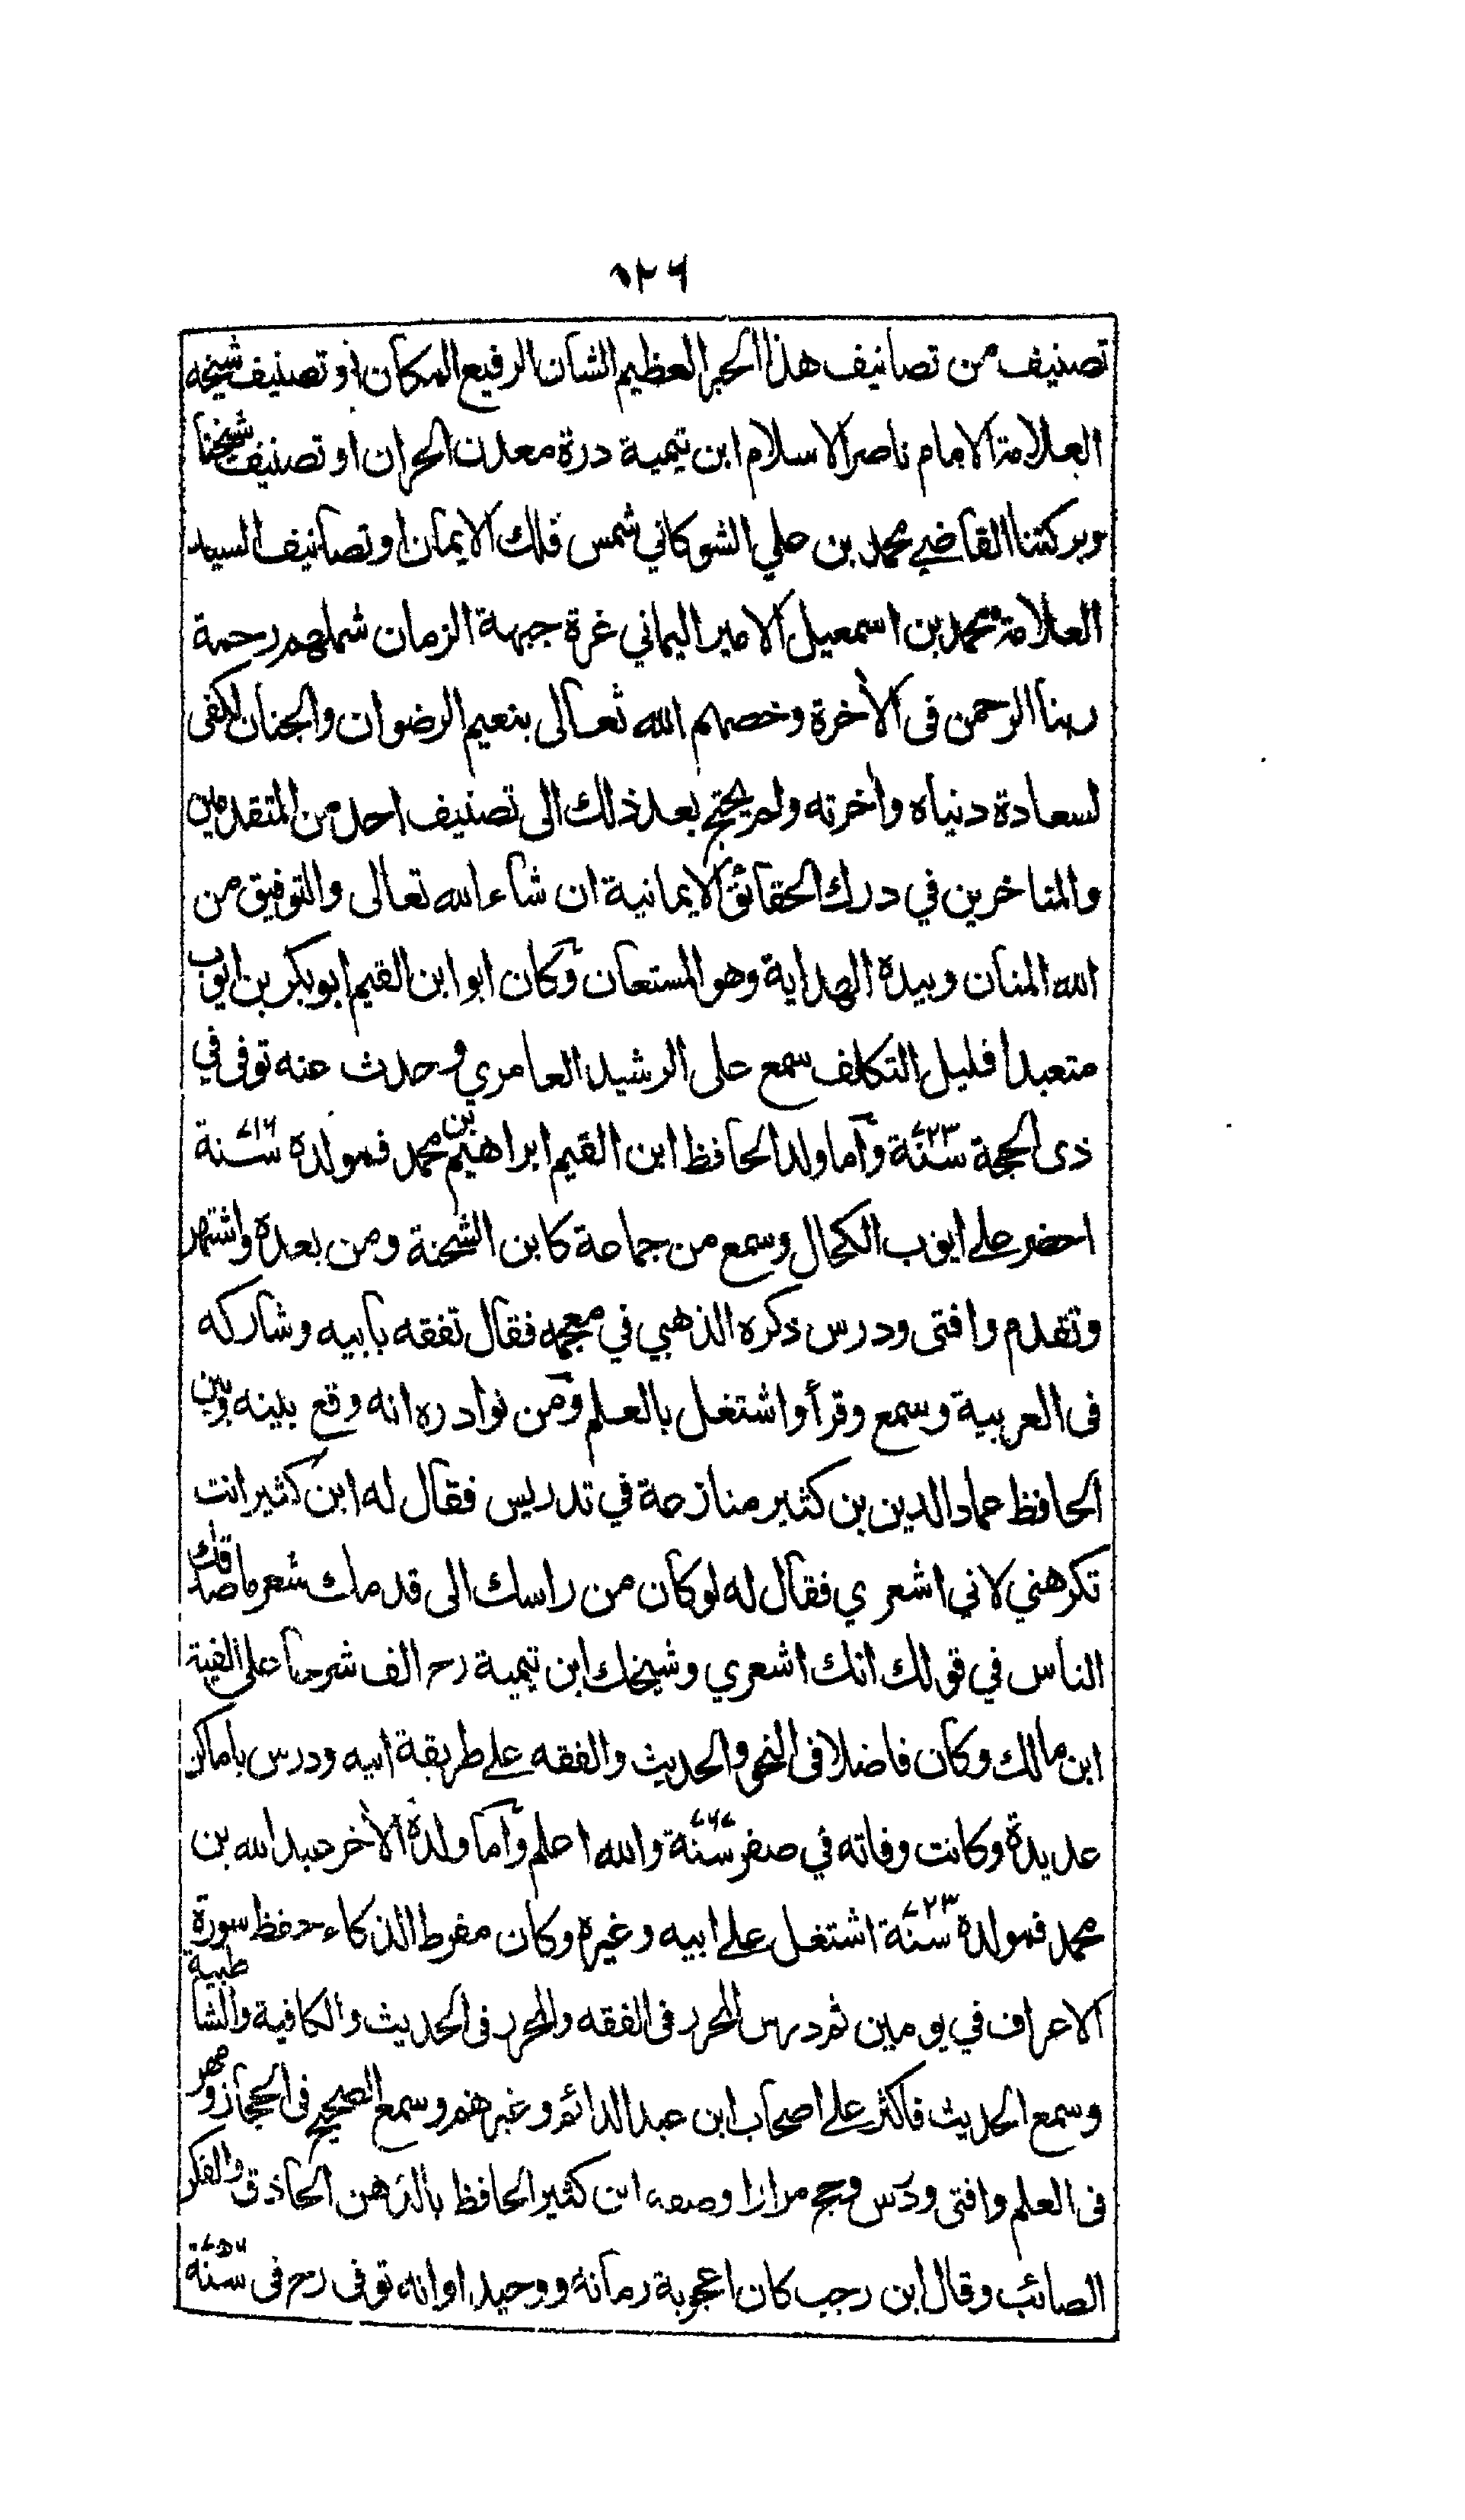 ١٢٦
تصنيف من تصانيف هذا الحبر العظيم الشان الرفيع المكان او تصنيف شيخه
العلامة الامام ناصر الاسلام ابن تيمية درة معدن الحران او تصنيف شيخنا
وبركتنا القاضي محمد بن علي الشوكاني شمس فلك الايمان او تصانيف السيد
العلامة محمد بن اسمعيل الامير اليماني غرة جبهة الزمان شملهم رحمة
ربنا الرحمن في الآخرة وخصهم الله تعالى بنعيم الرضوان والجنان لكفى
لسعادة دنياه وآخرته ولم يحتج بعد ذلك الى تصنيف احد من المتقدمين
والمتاخرين في درك الحقائق الايمانية ان شاء الله تعالى والتوفيق من
الله المنان وبيده الهداية وهو المستعان وكان ابو ابن القيم ابو بكر بن ايوب
متعبدا قليل التكلف سمع على الرشيد العامري وحدث عنه توفي في
ذى الحجة سنة ٧٢٣ وأما ولد الحافظ ابن القيم ابراهيم بن محمد فمولده سنة ٧١٦
احضر على ايوب الكحال وسمع من جماعة كابن الشحنة ومن بعده واشتهر
وتقدم وافتى ودرس ذكره الذهبي في معجمه فقال تفقه بابيه وشاركه
في العربية وسمع وقرأ واشتغل بالعلم ومن نوادره انه وقع بينه وبين
الحافظ عماد الدين بن كثير منازعة في تدريس فقال له ابن كثير انت
تكرهني لاني اشعري فقال له لو كان من راسك الى قدمك شعر ما صدقك
الناس في قولك انك اشعري وشيخك ابن تيمية رح الف شرحا على الفية
ابن مالك وكان فاضلا في النحو والحديث والفقه على طريقة ابيه ودرس باماكن
عديدة وكانت وفاته في صفر سنة ٧٦٧ والله اعلم وأما ولده الآخر عبد الله بن
محمد فمولده سنة ٧٢٣ اشتغل على ابيه وغيره وكان مفرط الذكاء حفظ سورة
الاعراف في يومين ثم درس المحرر في الفقه والمحرر في الحديث والكافية والشاطبية
وسمع الحديث فاكثر على اصحاب ابن عبد الدائم وغيرهم وسمع الصحيح في الحجاز ومهر
في العلم وافتى ودرس وحج مرارا وصفه ابن كثير الحافظ بالذهن الحاذق والفكر
الصائب وقال ابن رجب كان اعجوبة زمانه ووحيد اوانه توفي رح في سنة ٧٥٦